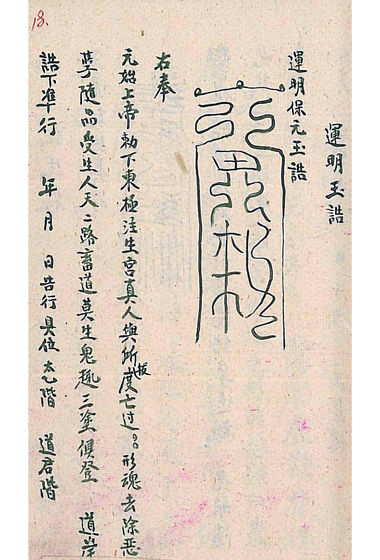 18.
運明玉誥
運明保元玉誥
右奉
元始上帝勅下東極注生宮真人與所度拔亡过。。形魂去除惡
孽随品受生人天二路畜道莫生鬼趣三塗俱登 道岸
誥下準行 年 月 日告行具位 太乙階 道君階